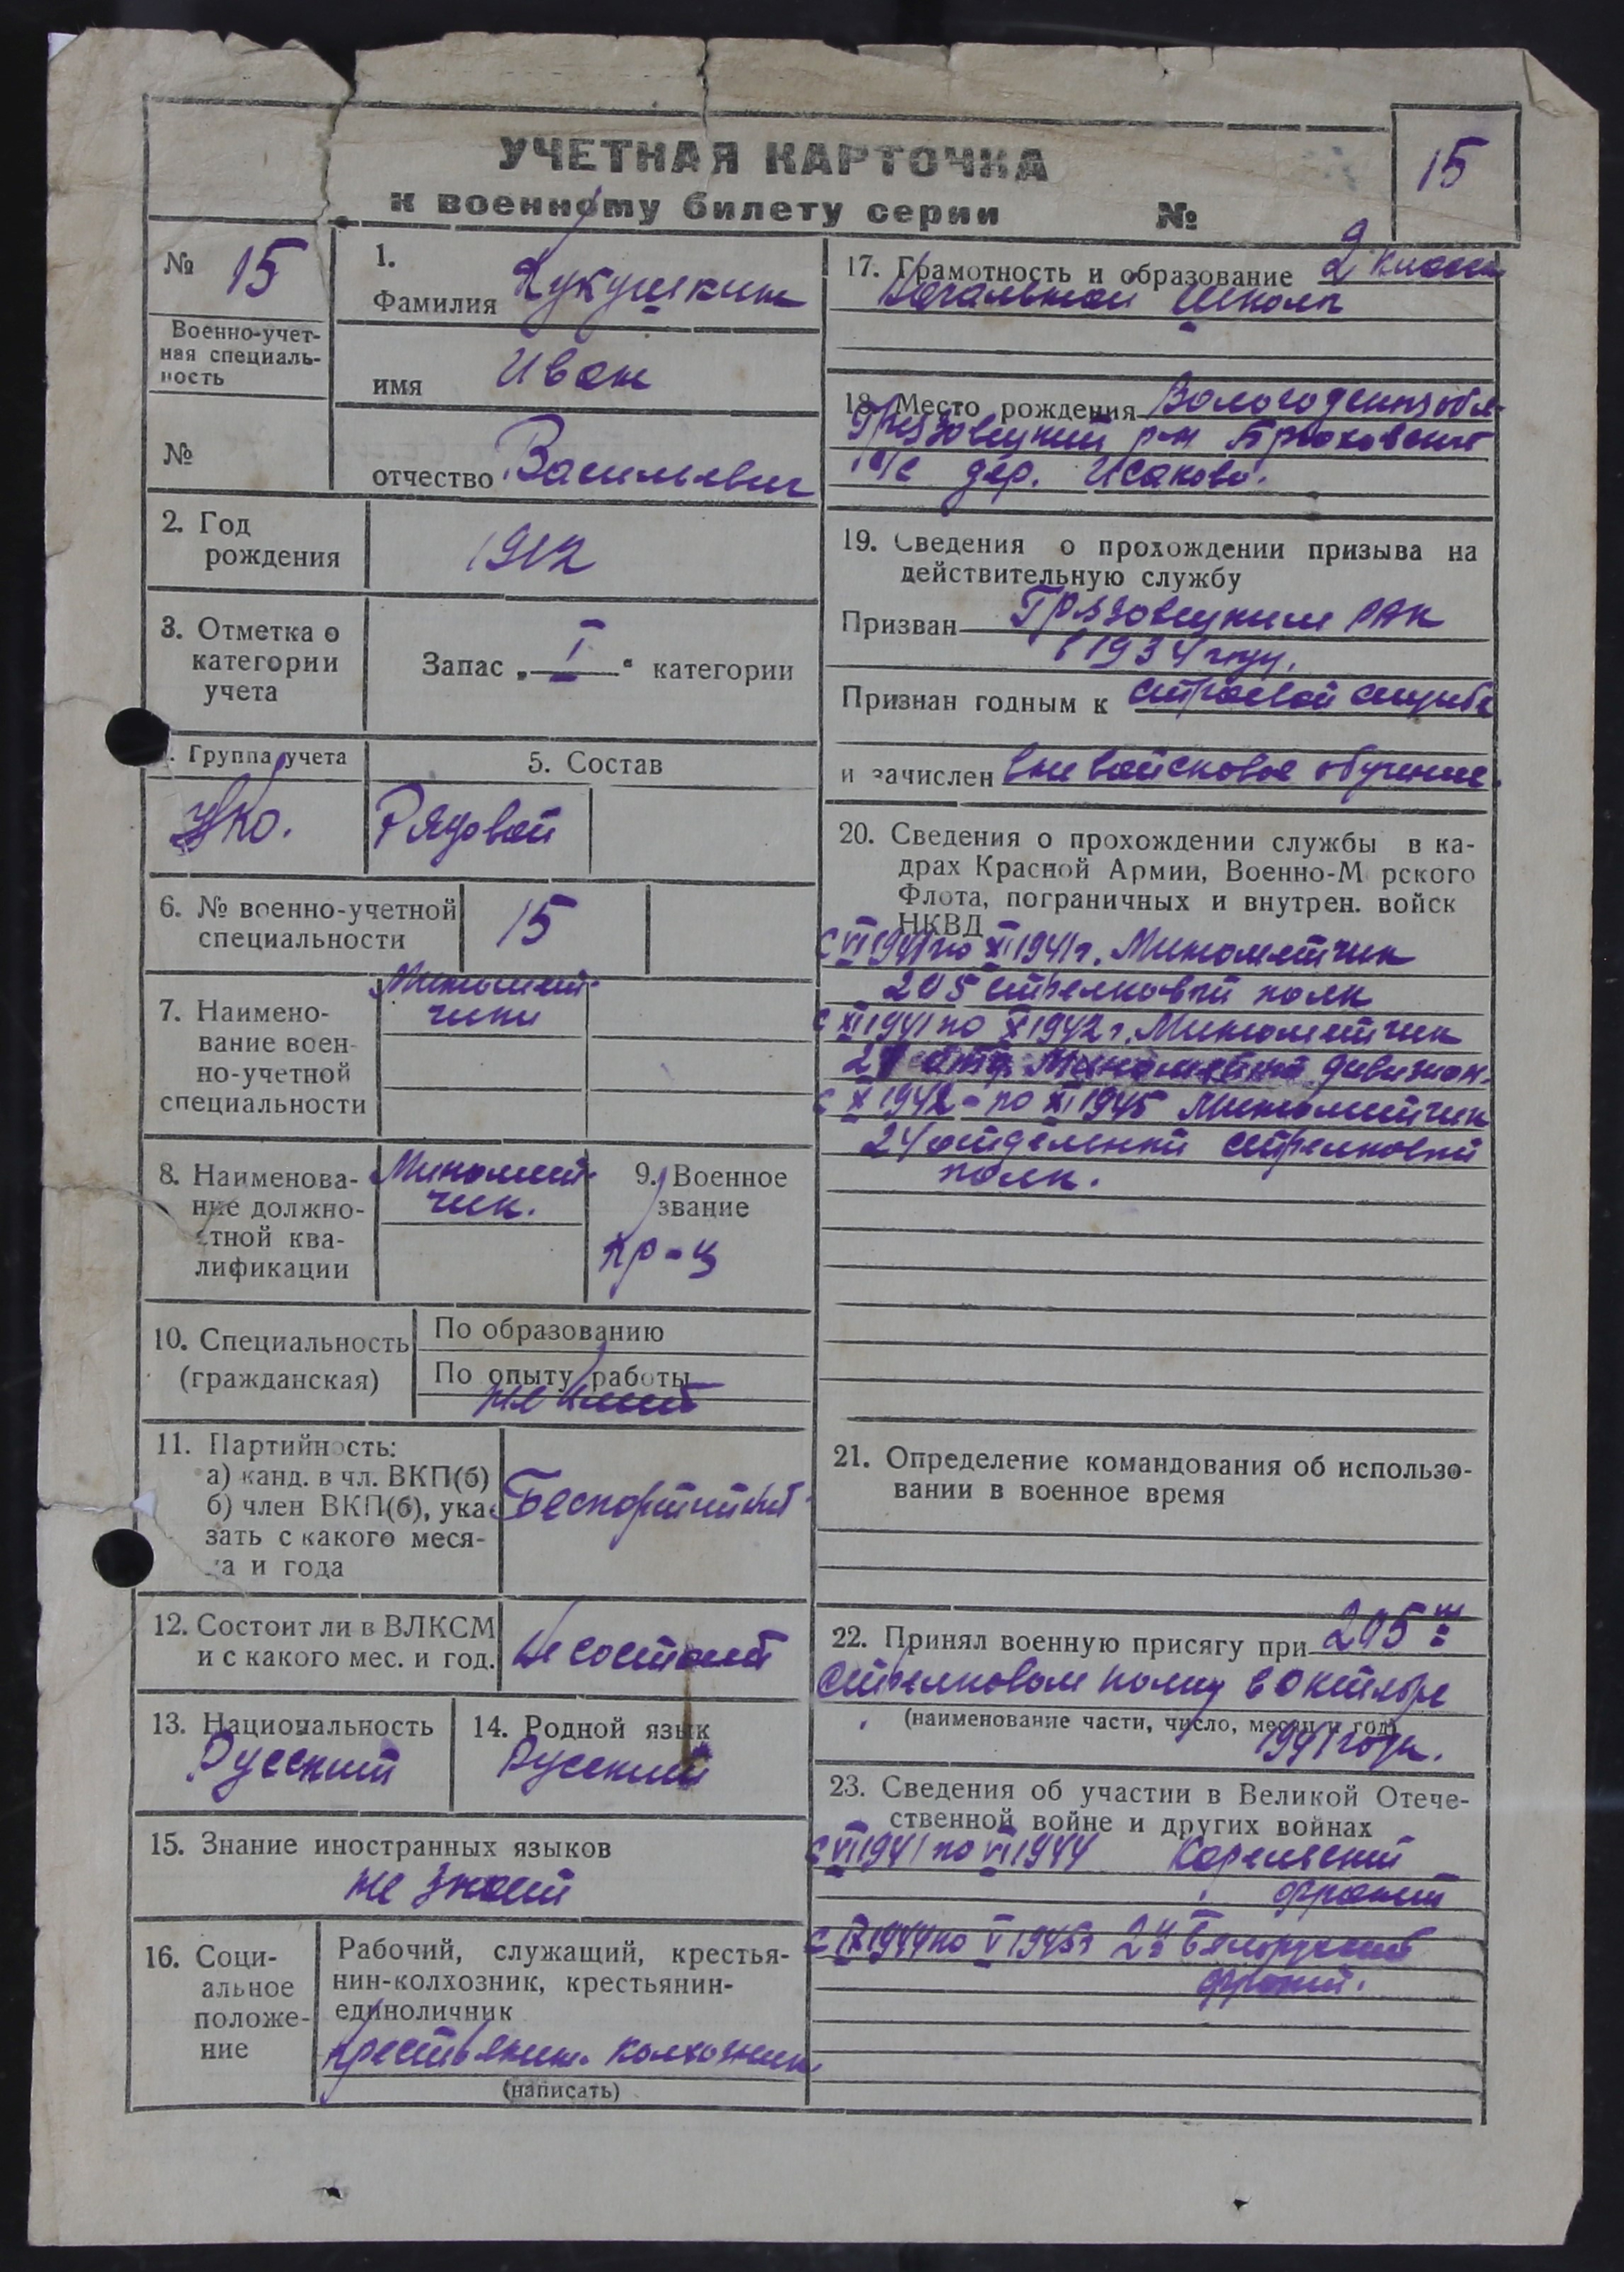 УЧЕТНАЯ КАРТОЧКА
к военному билету серии №
15
№ 15
Военно-учет-
ная специаль-
ность
№
1.
Фамилия Кукушкин
имя Иван
отчество Васильевич
2. Год
рождения
1912
3. Отметка о
категории
учета
Запас „ I “ категории
. Группа учета
5. Состав
Рядовой
6. № военно-учетной
специальности
15
7. Наимено-
вание воен-
но-учетной
специальности
Миномет-
чики
8. Наименова-
ние должно-
стной ква-
лификации
Миномет-
чик.
9. Военное
звание
кр-ц
10. Специальность
(гражданская)
По образованию
По опыту работы
не имеет
11. Партийность:
а) канд. в чл. ВКП(б)
б) член ВКП(б), ука-
зать с какого меся-
ца и года
Беспартийный
12. Состоит ли в ВЛКСМ
и с какого мес. и год.
Не состоит
13. Национальность
Русский
14. Родной язык
Русский
15. Знание иностранных языков
не знает
16. Соци-
альное
положе-
ние
Рабочий, служащий, крестья-
нин-колхозник, крестьянин-
единоличник
Крестьянин колхозник
(написать)
17. Грамотность и образование 2 класса
Начальной школы
18. Место рождения Вологодской обл.
Грязовецкий р-н Брюховский
с/с дер. Исаково.
19. Сведения о прохождении призыва на
действительную службу
Призван Грязовецким РВК
в 1934 году.
Признан годным к строевой службе
и зачислен вневойсковое обучение.
20. Сведения о прохождении службы в ка-
драх Красной Армии, Военно-М рского
Флота, пограничных и внутрен. войск
НКВД
с VI 1941 по XI 1941 г. Минометчик
205 стрелковый полк
с XI 1941 по X 1942 г. Минометчик
дивизион.
с X 1942 - по XI 1945 Минометчик
24 отдельный стрелковый
полк.
21. Определение командования об использо-
вании в военное время
22. Принял военную присягу при 205м
стрелковом полку в октябре
(наименование части, число, месяц и год)
1941 года.
23. Сведения об участии в Великой Отече-
ственной войне и других войнах
с VI 1941 по VI 1944 Карельский
фронт
с IX 1944 по V 1945 г 2й Белорусский
фронт.